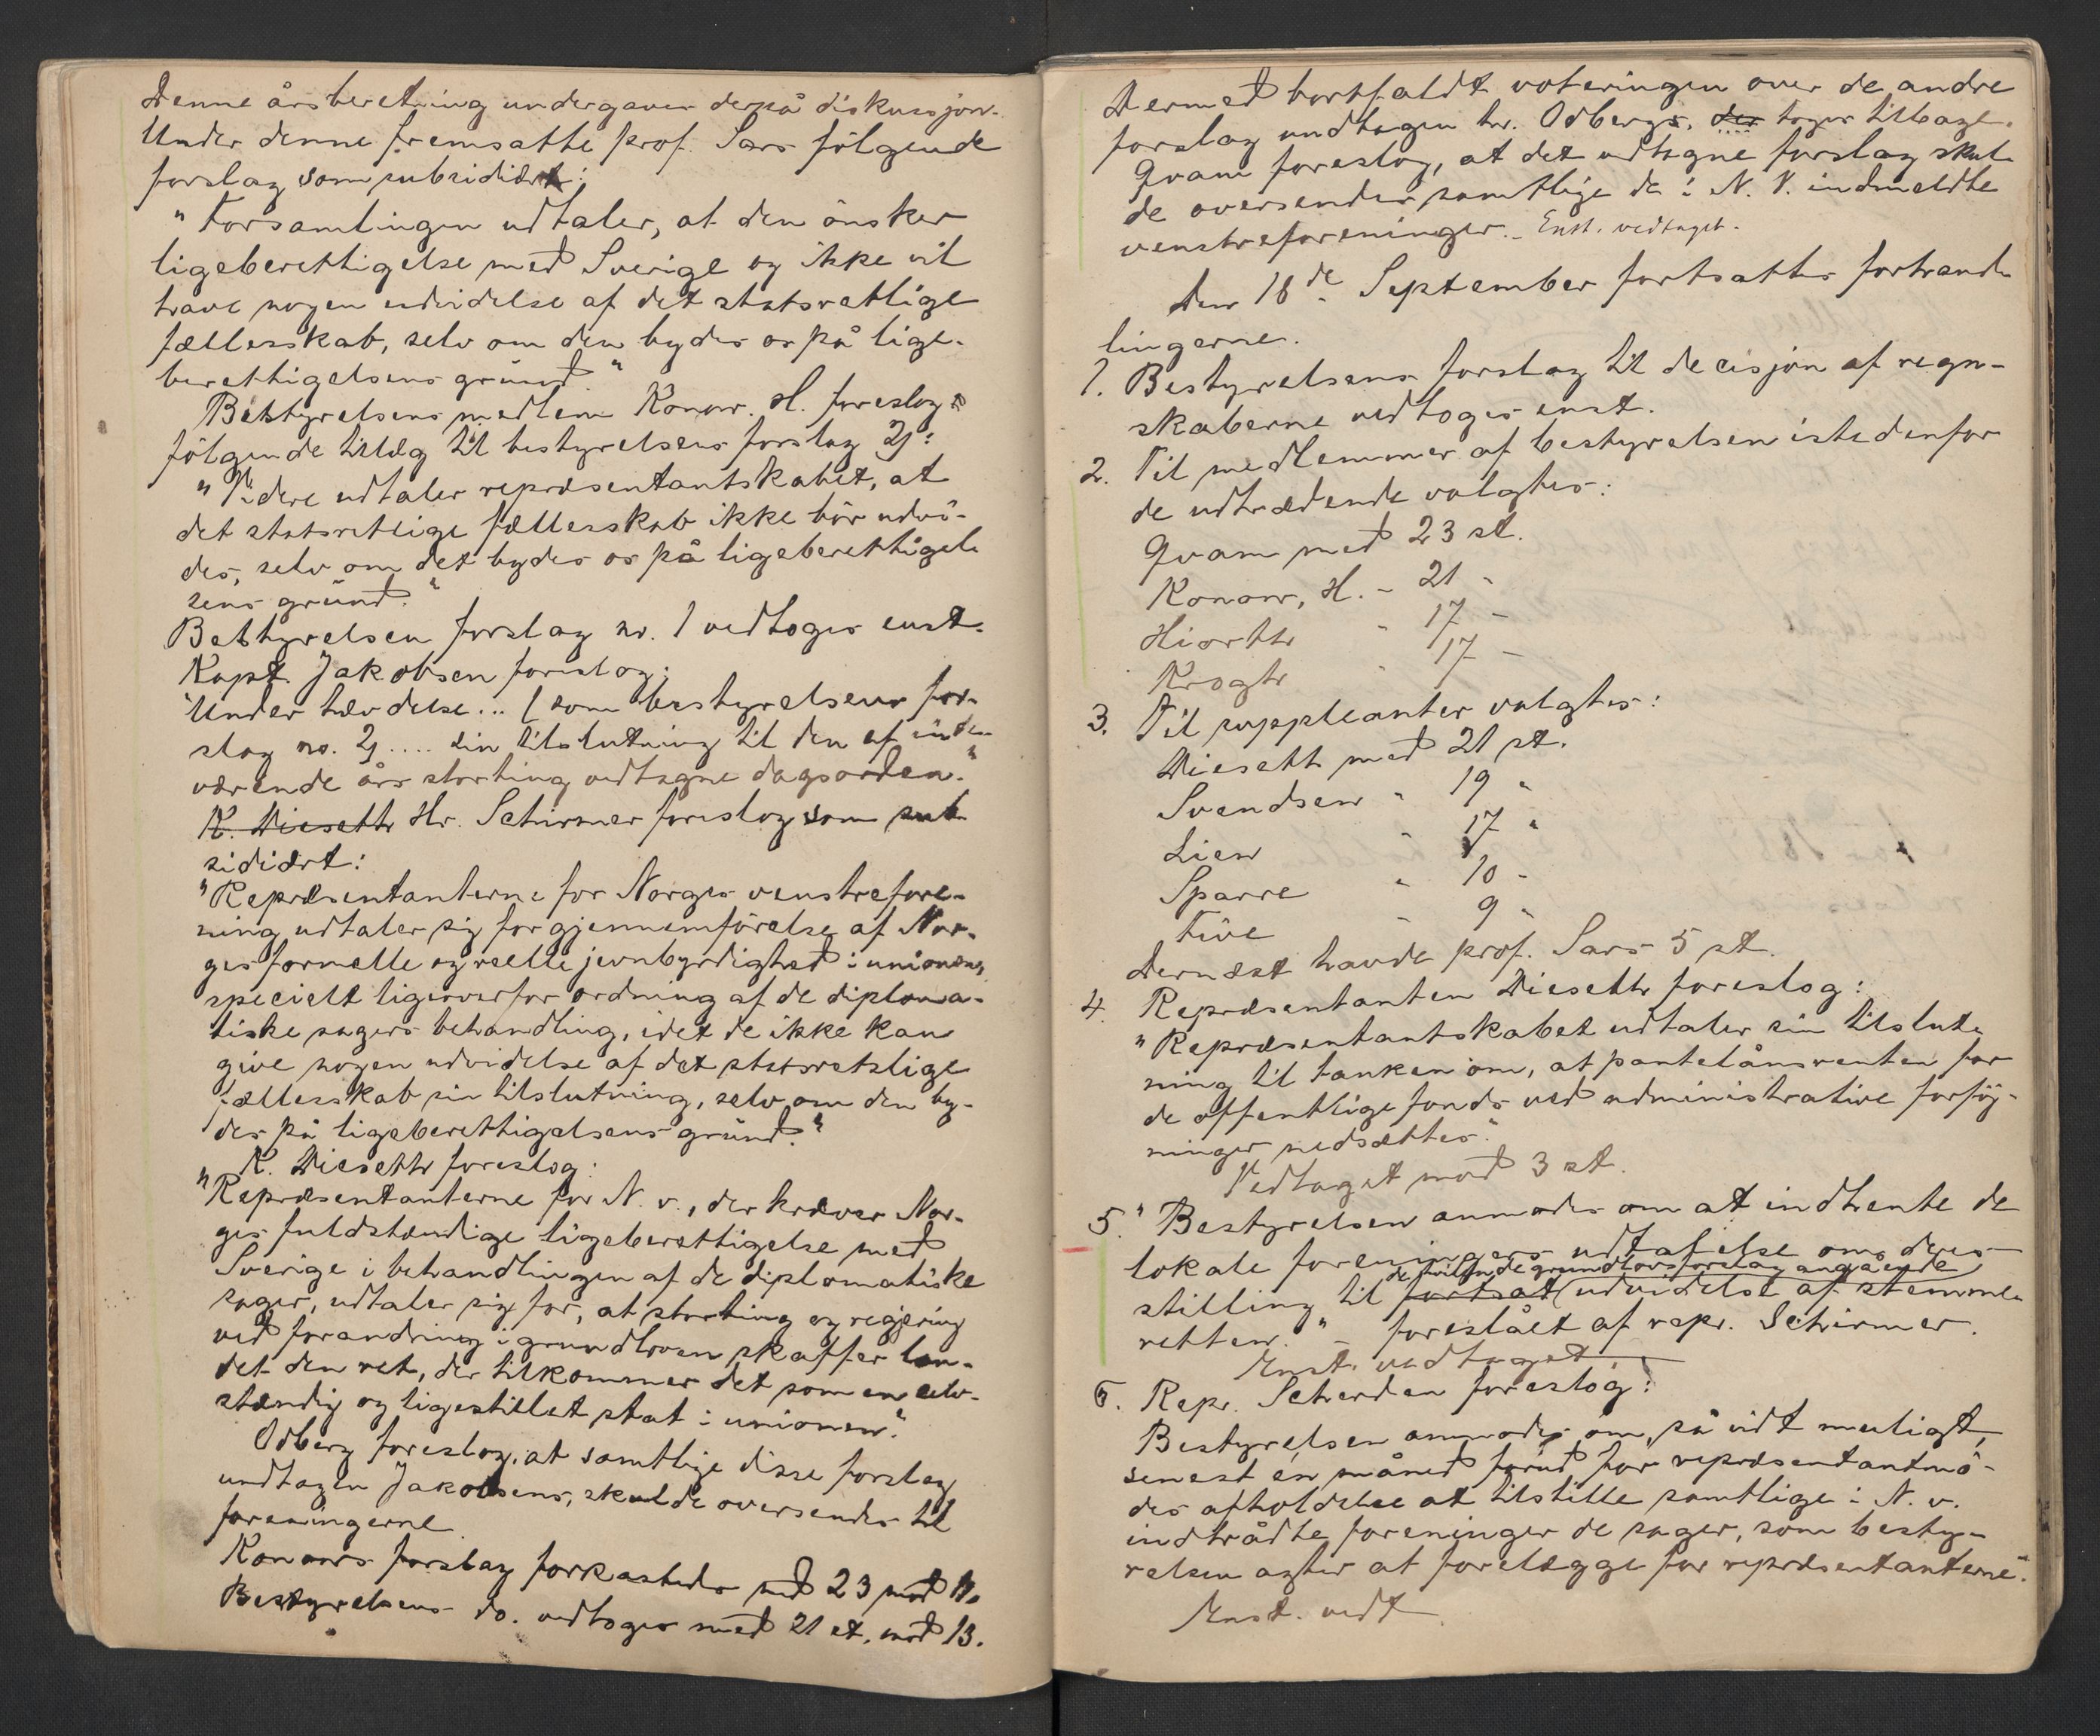 Denne årsberetning undergaves derpå diskussjon.
Under denne fremsatte prof. Sars følgende
forslag som subsidiært:
"Forsamlingen udtaler, at den ønsker
ligeberettigelse med Sverige og ikke vil
have nogen udvidelse af det statsretlige
fællesskab, selv om den bydes os på lige-
berettigelsens grund."
Bestyrelsens medlem Konow. H. foreslog
følgende tillæg til bestyrelsens forslag 2):
"Videre udtaler repræsentantskabet, at
det statsretlige fællesskab ikke bør udvi-
des, selv om det bydes os på ligeberettigel-
sens grund."
Bestyrelsen forslag no. 1 vedtoges enst.
Kapt. Jakobsen foreslog:
"Under hævdelse... (som bestyrelsens for-
slag no. 2) .... sin tilslutning til den af inde-
værende års storting vedtagne dagsorden."
K. Dieseth Hr. Schirmer foreslog som sub-
sidiært:
"Repræsentanterne for Norges venstrefore-
ning udtaler sig for gjennemførelse af Nor-
ges formelle og reelle jevnbyrdighed i unionen,
specielt ligeoverfor ordning af de diploma-
tiske sagers behandling, idet de ikke kan
give nogen udvidelse af det statsretslige
fællesskab sin tilslutning, selv om den by-
des på ligeberettigelsens grund."
K. Dieseth foreslog:
"Repræsentanterne for N. v., der kræver Nor-
ges fuldstændige ligeberettigelse med
Sverige i behandlingen af de diplomatiske
sager, udtaler sig for, at storting og regjering
ved forandring i grundloven skaffer lan-
det den ret, der tilkommer det som en selv-
stændig og ligestillet stat i unionen."
Odberg foreslog, at samtlige disse forslag
undtagen Jakobsens, skulde oversendes til
foreningerne.
Konows forslag forkastedes med 23 mod 11.
Bestyrelsens do. vedtoges med 21 st. mod 13.
Dermed bortfaldt voteringen over de andre
forslag undtagen hr. Odbergs, der toges tilbage.
Qvam foreslog, at det vedtagne forslag skul-
de oversendes samtlige de i N. V. indmeldte
venstreforeninger. – Enst. vedtaget.
Den 18de September fortsattes forhand-
lingerne.
1. Bestyrelsens forslag til decisjon af regn-
skaberne vedtoges enst.
2. Til medlemmer af bestyrelsen istedenfor
de udtrædende valgtes:
Qvam med 23 st.
Konow, H. - 21 -
Hiorth - 17 -
Krogh - 17 -
3. Til suppleanter valgtes:
Dieseth med 21 st.
Svendsen " 19 "
Lien " 17 "
Sparre " 10 "
Five " 9 "
Dernæst havde prof. Sars 5 st.
4. Repræsentanten Dieseth foreslog:
"Repræsentantskabet udtaler sin tilslut-
ning til tanken om, at pantelånsrenten for
de offentlige fonds ved administrative forføj-
ninger nedsættes."
Vedtaget mod 3 st.
5. "Bestyrelsen anmodes om at indhente de
lokale foreningers udtalelse om deres
de hvilende grundlovsforslag angående
stilling til fortsat udvidelse af stemme-
retten." – foreslået af repr. Schirmer.
Enst. vedtaget.
6. Repr. Scherden foreslog:
Bestyrelsen anmodes om, så vidt muligt,
senest én måned førud for repræsentantmø-
des afholdelse at tilstille samtlige i N. v.
indtrådte foreninger de sager, som besty-
relsen agter at forelægge for repræsentanterne."
Enst. vedt.